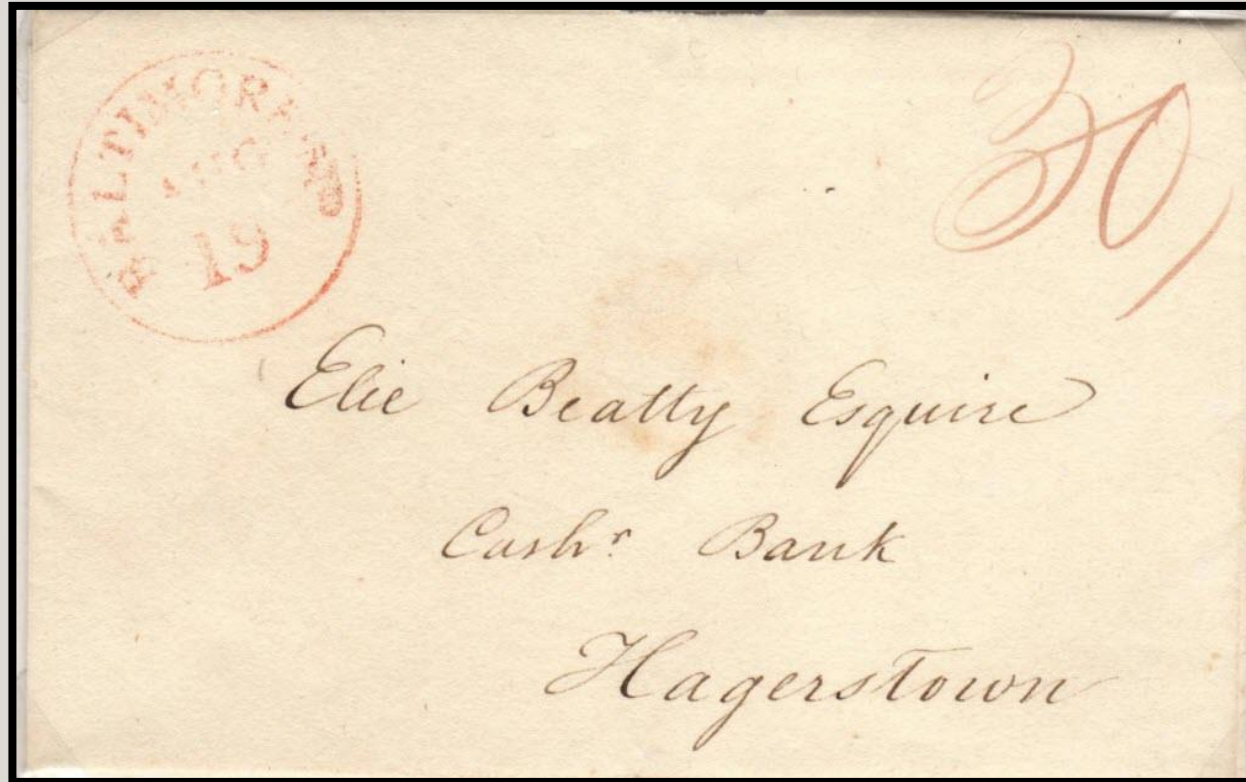 BALTIMORE MD
AUG
19
30
Elie Beatty Esquire
Cashr Bank
Hagerstown